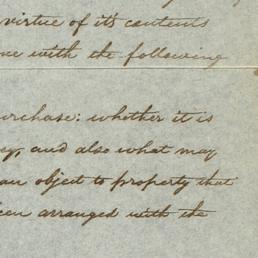 virtue of it's contents
one with the following
urchase: whether it is
ey, and also what may
an object to property that
een arranged with the